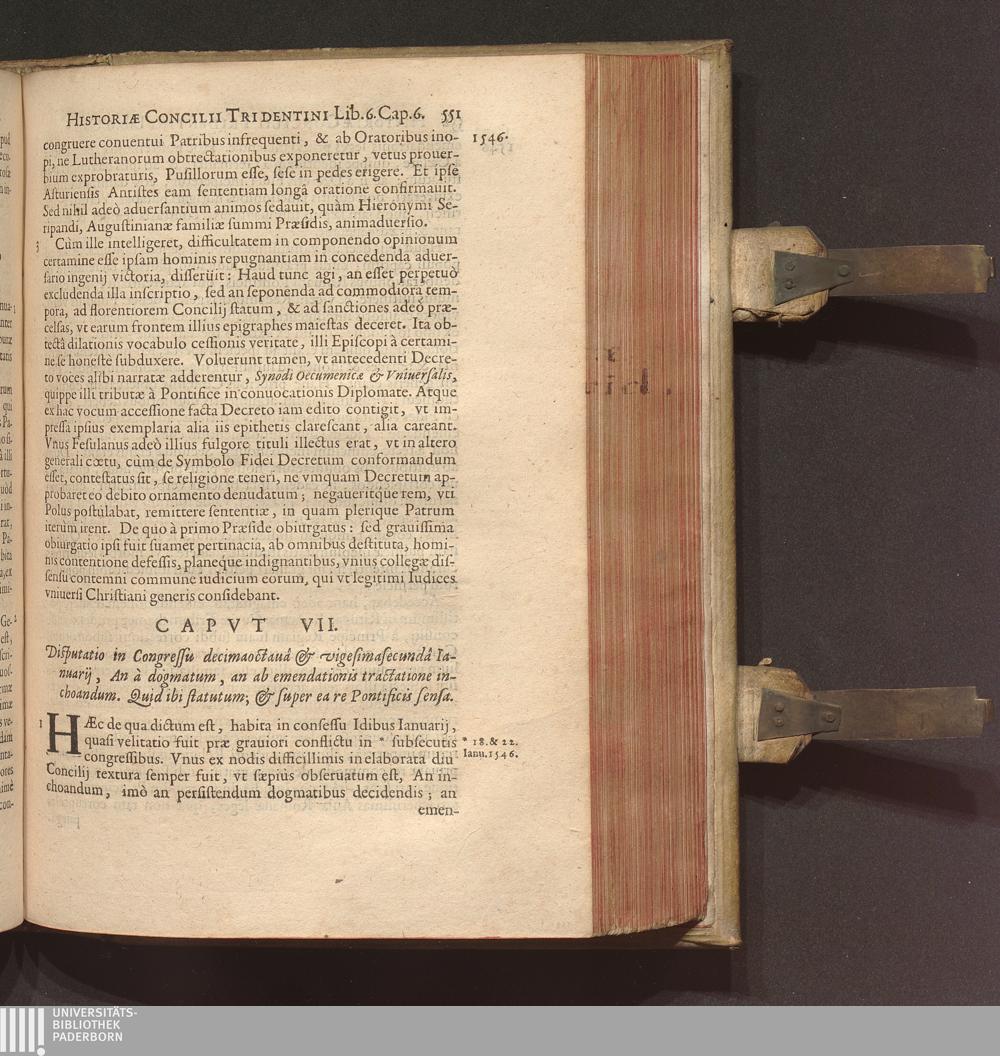 HISTORIÆ CONCILII TRIDENTINI Lib.6. Cap.6. 551
1546.
congruere conuentui Patribus infrequenti, & ab Oratoribus ino-
pi, ne Lutheranorum obtrectationibus exponeretur, vetus prouer-
bium exprobraturis, Pusillorum esse, sese in pedes erigere. Et ipse
Asturiensis Antistes eam sententiam longâ oratione confirmauit.
Sed nihil adeò aduersantium animos sedauit, quàm Hieronymi Se-
ripandi, Augustinianæ familiæ summi Præsidis, animaduersio.
3 Cùm ille intelligeret, difficultatem in componendo opinionum
certamine esse ipsam hominis repugnantiam in concedenda aduer-
sario ingenij victoria, disseruit: Haud tunc agi, an esset perpetuò
excludenda illa inscriptio, sed an seponenda ad commodiora tem-
pora, ad florentiorem Concilij statum, & ad sanctiones adeò præ-
celsas, vt earum frontem illius epigraphes maiestas deceret. Ita ob-
tectâ dilationis vocabulo cessionis veritate, illi Episcopi à certami-
ne se honestè subduxere. Voluerunt tamen, vt antecedenti Decre-
to voces alibi narratæ adderentur, Synodi Oecumenicæ & Vniuersalis,
quippe illi tributæ à Pontifice in conuocationis Diplomate. Atque
ex hac vocum accessione facta Decreto iam edito contigit, vt im-
pressa ipsius exemplaria alia iis epithetis clarescant, alia careant.
Vnus Fesulanus adeò illius fulgore tituli illectus erat, vt in altero
generali cœtu, cùm de Symbolo Fidei Decretum conformandum
esset, contestatus sit, se religione teneri, ne vmquam Decretum ap-
probaret eo debito ornamento denudatum; negaueritque rem, vti
Polus postulabat, remittere sententiæ, in quam plerique Patrum
iterùm irent. De quo à primo Præside obiurgatus: sed grauissima
obiurgatio ipsi fuit suamet pertinacia, ab omnibus destituta, homi-
nis contentione defessis, planeque indignantibus, vnius collegæ dis-
sensu contemni commune iudicium eorum, qui vt legitimi Iudices
vniuersi Christiani generis considebant.
CAPVT VII.
Disputatio in Congressu decimaoctauâ & vigesimasecundâ Ia-
nuarij, An à dogmatum, an ab emendationis tractatione in-
choandum. Quid ibi statutum; & super ea re Pontificis sensa.
1 HÆc de qua dictum est, habita in consessu Idibus Ianuarij,
quasi velitatio fuit præ grauiori conflictu in * subsecutis
* 18. & 22.
Ianu. 1546.
congressibus. Vnus ex nodis difficillimis in elaborata diu
Concilij textura semper fuit, vt sæpius obseruatum est, An in-
choandum, imò an persistendum dogmatibus decidendis; an
emen-
UNIVERSITÄTS-
BIBLIOTHEK
PADERBORN